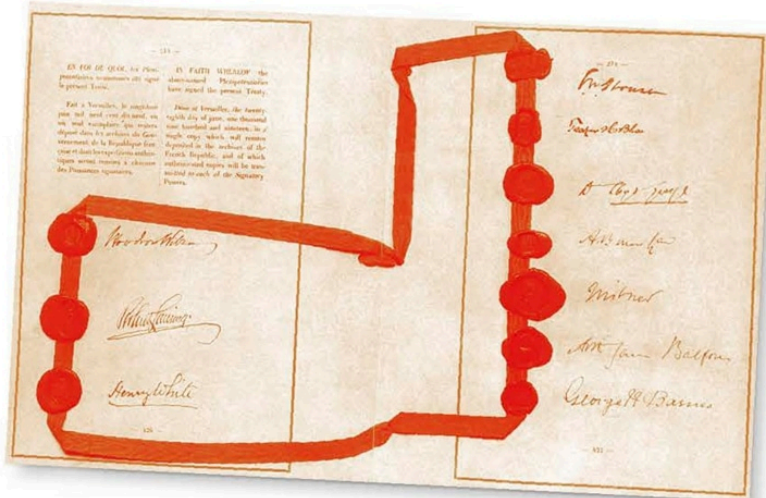 EN FOI DE QUOI, les Pléni-
potentiaires susnommés ont signé
le présent Traité.
Fait à Versailles, le vingt-huit
juin mil neuf cent dix-neuf, en
un seul exemplaire qui restera
déposé dans les archives du Gou-
vernement de la République fran-
çaise et dont les expéditions authen-
tiques seront remises à chacune
des Puissances signataires.
IN FAITH WHEREOF the
above-named Plenipotentiaries
have signed the present Treaty.
Done at Versailles, the twenty-
eighth day of june, one thousand
nine hundred and nineteen, in a
single copy which will remain
deposited in the archives of the
French Republic, and of which
authenticated copies will be trans-
mitted to each of the Signatory
Powers.
Woodrow Wilson
Robert Lansing
Henry White
D Lloyd George
Milner
Arthur James Balfour
George N Barnes